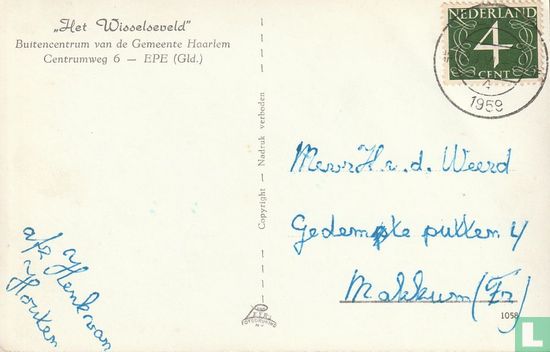 „Het Wisselseveld"
Buitencentrum van de Gemeente Haarlem
Centrumweg 6 — EPE (Gld.)
NEDERLAND
4
CENT
1959
Copyright - Nadruk verboden
Mevr H. v. d. Weerd
Gedempte putten 4
Makkum (Fr)
afz Henk van
Houten
1058
catawiki